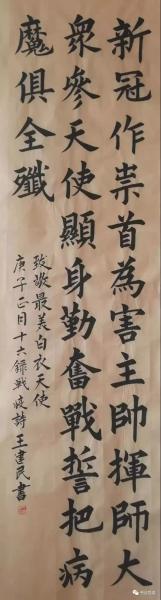 新冠作祟首為害主帥揮師大
衆參天使顯身勤奮戰誓把病
魔俱全殲
致敬最美白衣天使
庚子正月十六錄戰疫詩王建民書